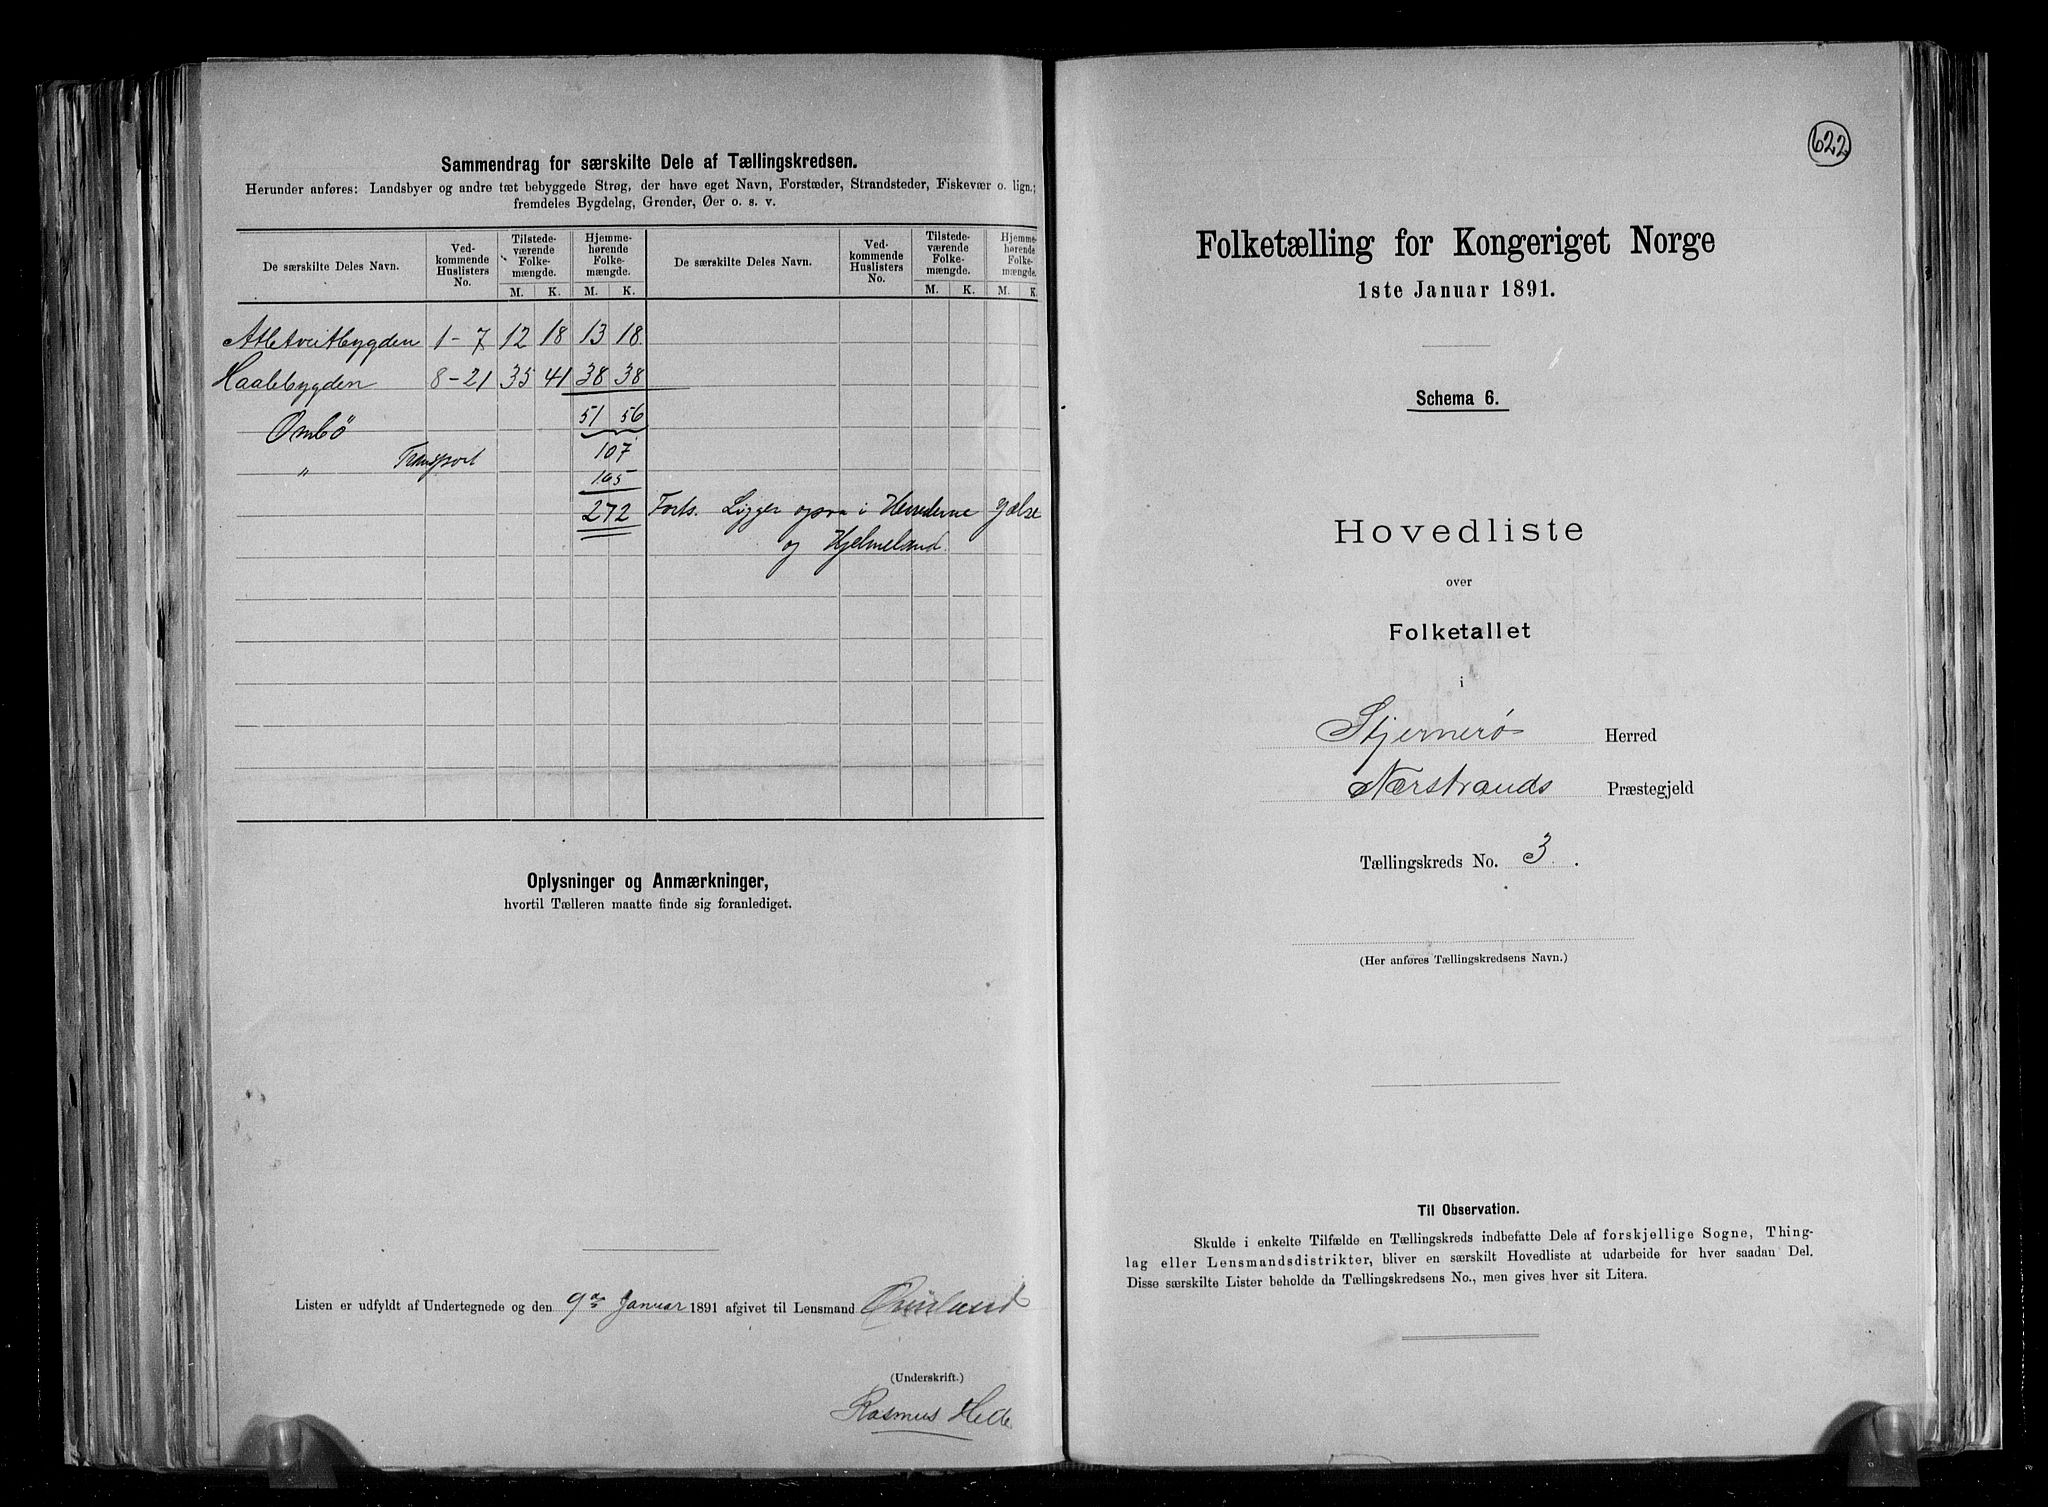 Sammendrag for særskilte Dele af Tællingskredsen.
Herunder anføres: Landsbyer og andre tæt bebyggede Strøg, der have eget Navn, Forstæder, Strandsteder, Fiskevær o. lign.;
fremdeles Bygdelag, Grender, Øer o. s. v.
De særskilte Deles Navn. Ved-kommende Huslisters No. Tilstede-værende Folke-mængde. Hjemme-hørende Folke-mængde. De særskilte Deles Navn. Ved-kommende Huslisters No. Tilstede-værende Folke-mængde. Hjemme-hørende Folke-mængde.
M. K. M. K. M. K. M. K.
Atletveitbygden 1-7 12 18 13 18
Haalebygden 8-21 35 41 38 38
Ombö 51 56
" Transport 107
165
272 Forts. Ligger ogsaa i Herrederne Jelse
og Hjelmeland
Oplysninger og Anmærkninger,
hvortil Tælleren maatte finde sig foranlediget.
Listen er udfyldt af Undertegnede og den 9de Januar 1891 afgivet til Lensmand
(Underskrift.)
Rasmus
622
Folketælling for Kongeriget Norge
1ste Januar 1891.
Schema 6.
Hovedliste
over
Folketallet
i
Stjernerö Herred
Nærstrands Præstegjeld
Tællingskreds No. 3.
(Her anføres Tællingskredsens Navn.)
Til Observation.
Skulde i enkelte Tilfælde en Tællingskreds indbefatte Dele af forskjellige Sogne, Thing-
lag eller Lensmandsdistrikter, bliver en særskilt Hovedliste at udarbeide for hver saadan Del.
Disse særskilte Lister beholde da Tællingskredsens No., men gives hver sit Litera.